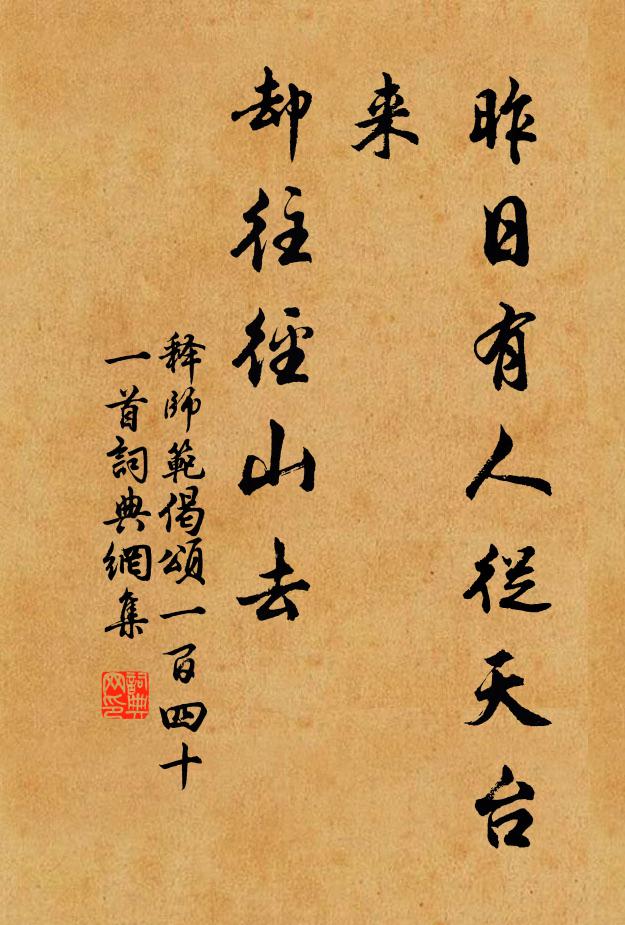 昨日有人從天台
来
却往徑山去
释師範偈頌一百四十
一首詞典網集
詞典
网印